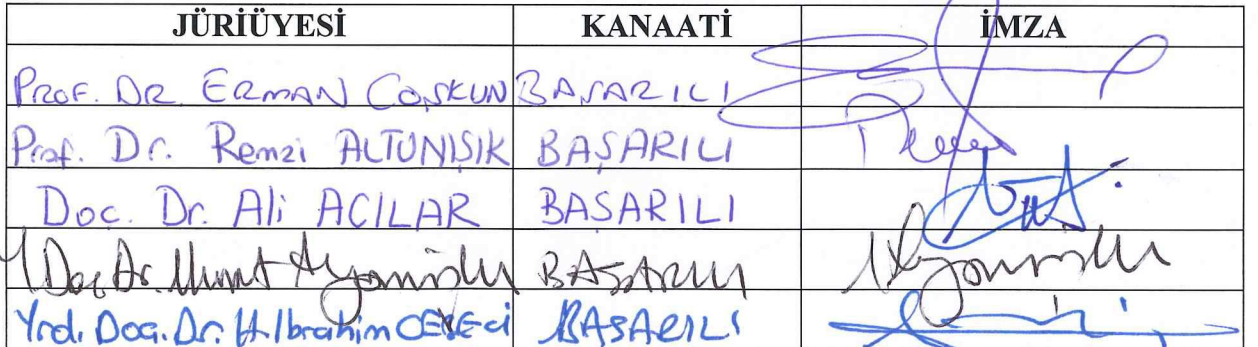 JÜRİÜYESİ KANAATİ İMZA
PROF. DR. ERMAN COŞKUN BAŞARILI
Prof. Dr. Remzi ALTUNIŞIK BAŞARILI
Doç. Dr. Ali ACILAR BAŞARILI
Y. Doç. Dr. BAŞARILI
Yrd. Doç. Dr. H. İbrahim BAŞARILI